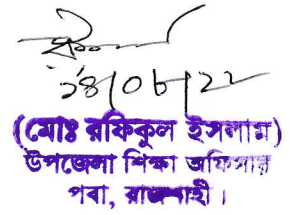 ১৪/০৮/২২
(মোঃ রফিকুল ইসলাম)
উপজেলা শিক্ষা অফিসার
পবা, রাজশাহী।